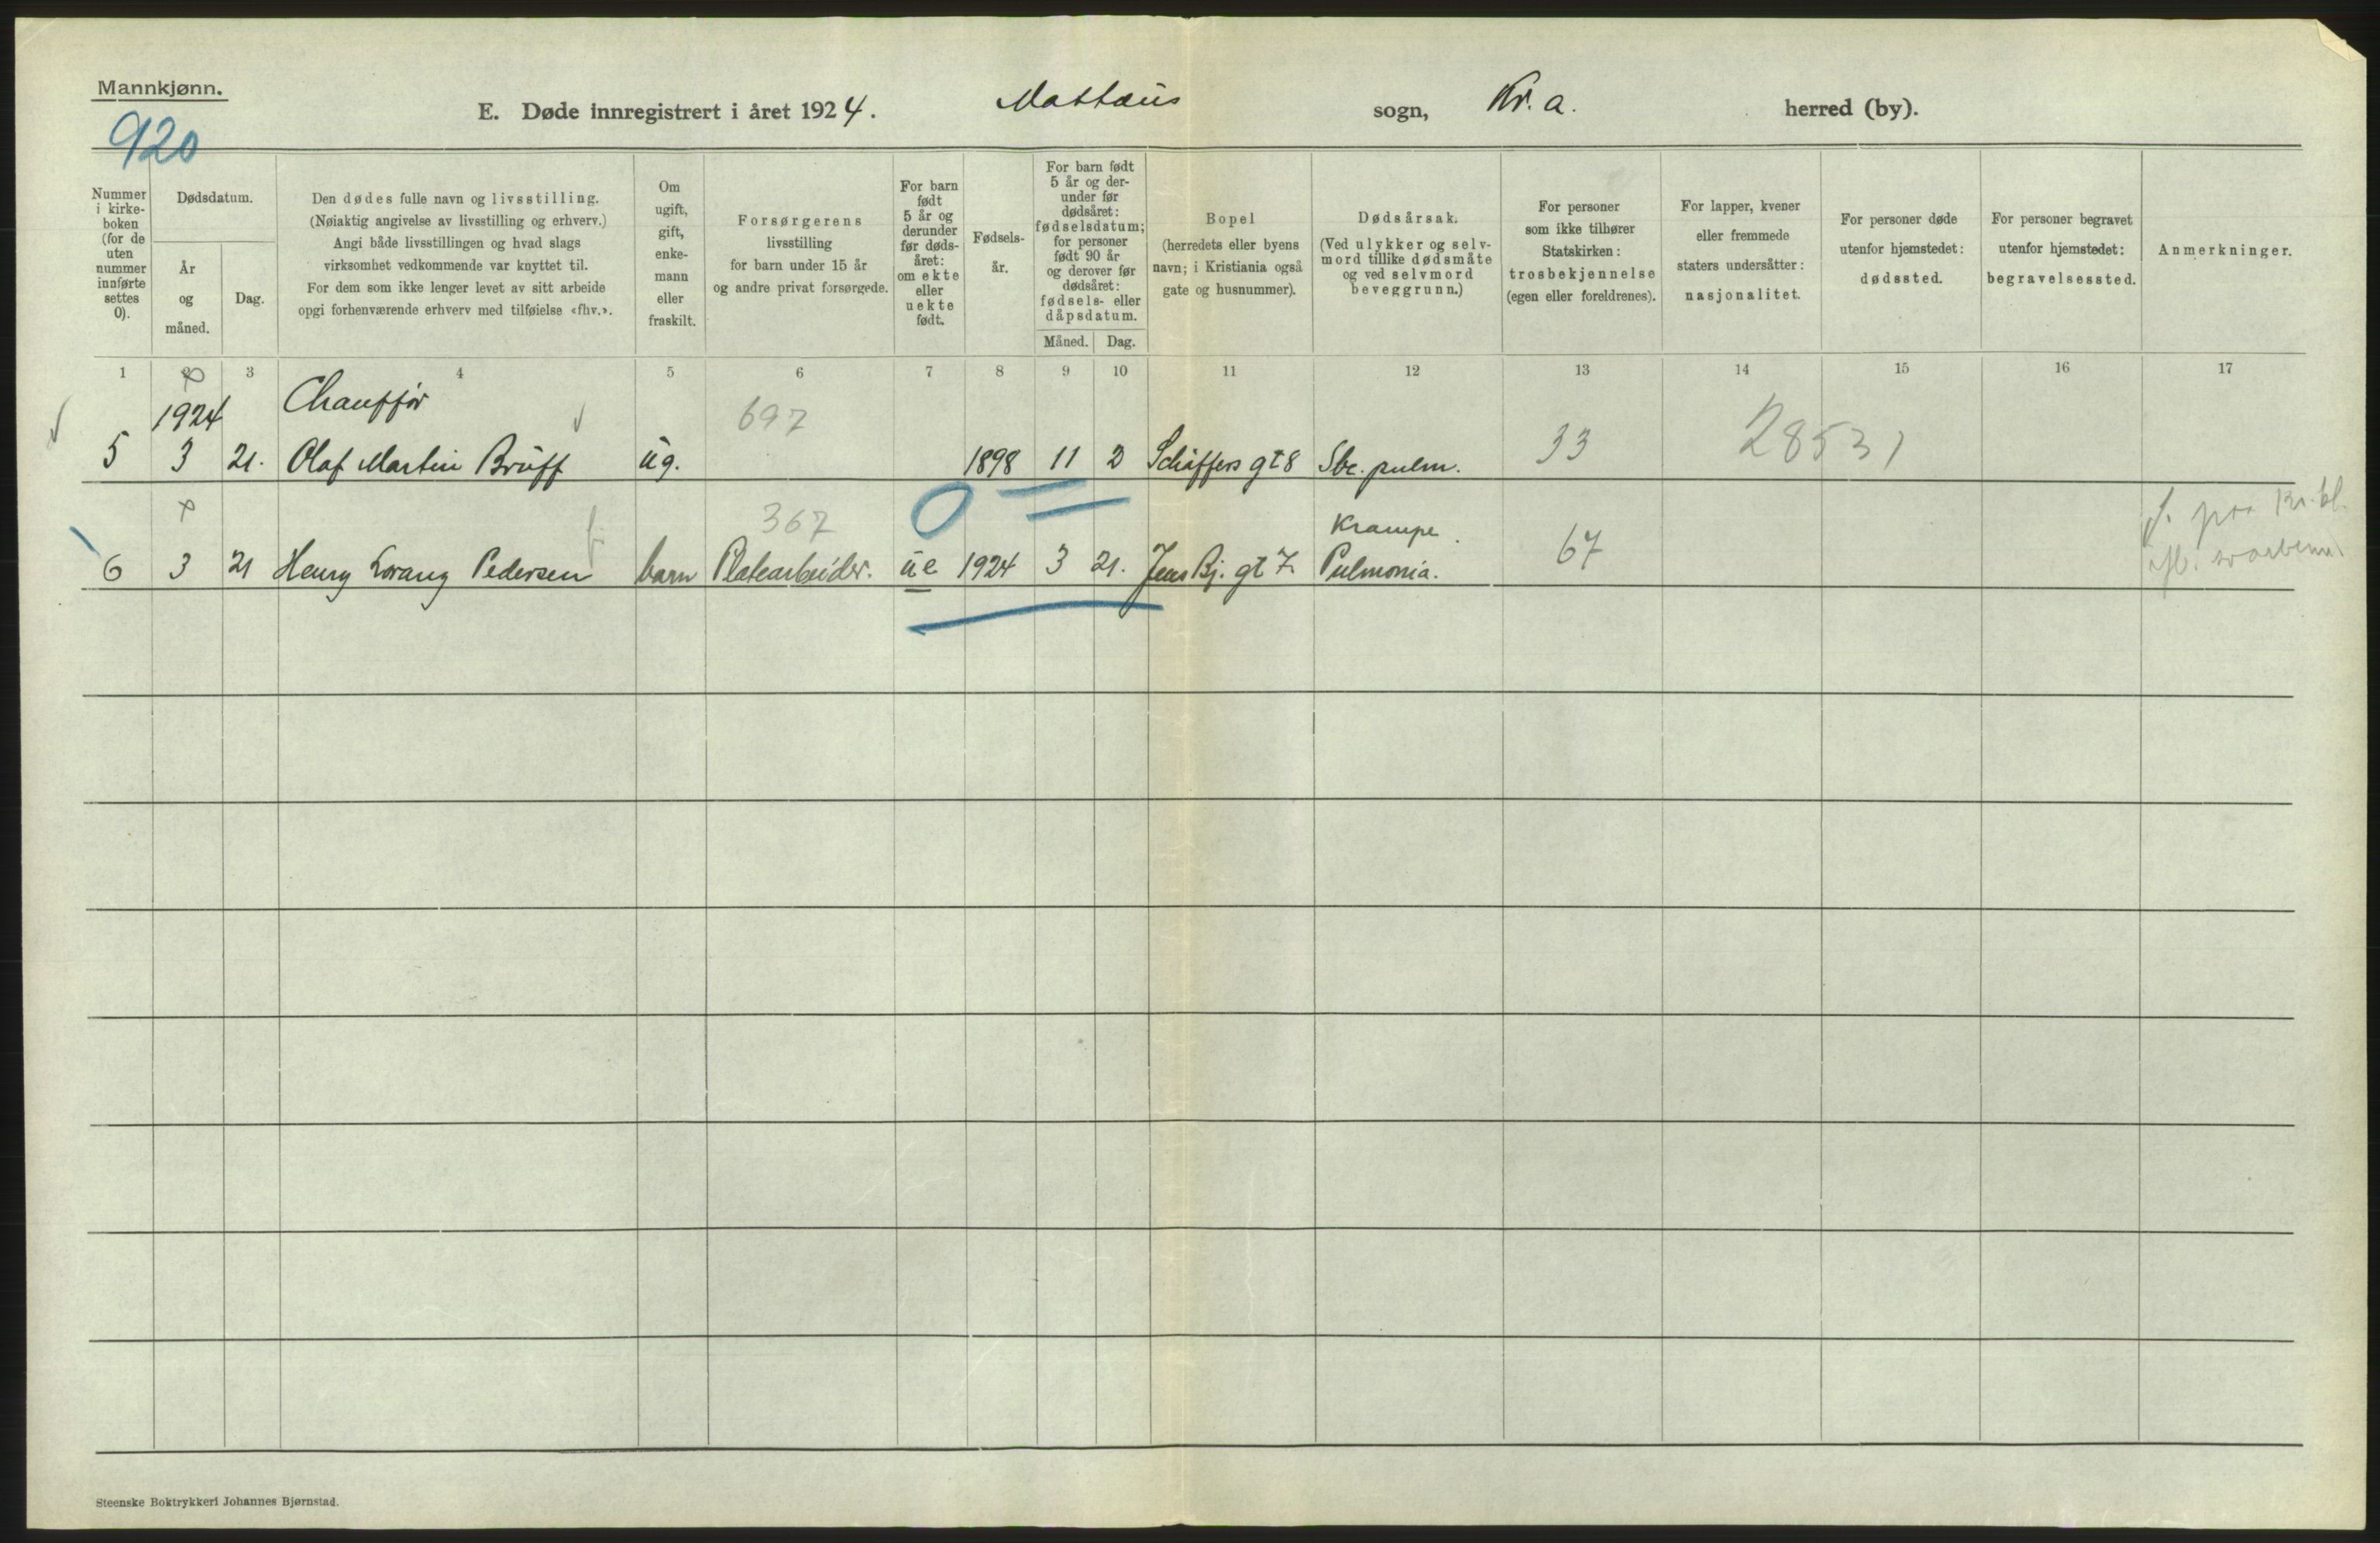 Mannkjønn.
920
E. Døde innregistrert i året 1924. Mattæus sogn, Kr.a. herred (by).
Nummer i kirke- boken (for de uten nummer innførte settes 0).
Dødsdatum.
År og måned.
Dag.
Den dødes fulle navn og livsstilling.
(Nøiaktig angivelse av livsstilling og erhverv.)
Angi både livsstillingen og hvad slags
virksomhet vedkommende var knyttet til.
For dem som ikke lenger levet av sitt arbeide
opgi forhenværende erhverv med tilføielse «fhv.».
Om ugift, gift, enke- mann eller fraskilt.
Forsørgerens
livsstilling
for barn under 15 år
og andre privat forsørgede.
For barn født 5 år og derunder før døds- året: om ekte eller uekte født.
Fødsels- år.
For barn født 5 år og der- under før dødsåret: fødselsdatum; for personer født 90 år og derover før dødsåret: fødsels- eller dåpsdatum.
Måned.
Dag.
Bopel
(herredets eller byens
navn; i Kristiania også
gate og husnummer).
Dødsårsak.
(Ved ulykker og selv-
mord tillike dødsmåte
og ved selvmord
beveggrunn.)
For personer
som ikke tilhører
Statskirken:
trosbekjennelse
(egen eller foreldrenes).
For lapper, kvener
eller fremmede
staters undersåtter:
nasjonalitet.
For personer døde
utenfor hjemstedet:
dødssted.
For personer begravet
utenfor hjemstedet:
begravelsessted.
Anmerkninger.
1 3 4 5 6 7 8 9 10 11 12 13 14 15 16 17
1924 Chauffør 697
5 3 21. Olaf Martin Brüff ug. 1898 11 2 Schäffers gt 8 Tbc. pulm. 33 28531
367 Krampe.
6 3 21 Henry Lorang Pedersen barn Platearbeider. ue 1924 3 21. Jens Bj. gt 7 Pulmonia. 67
Steenske Boktrykkeri Johannes Bjørnstad.